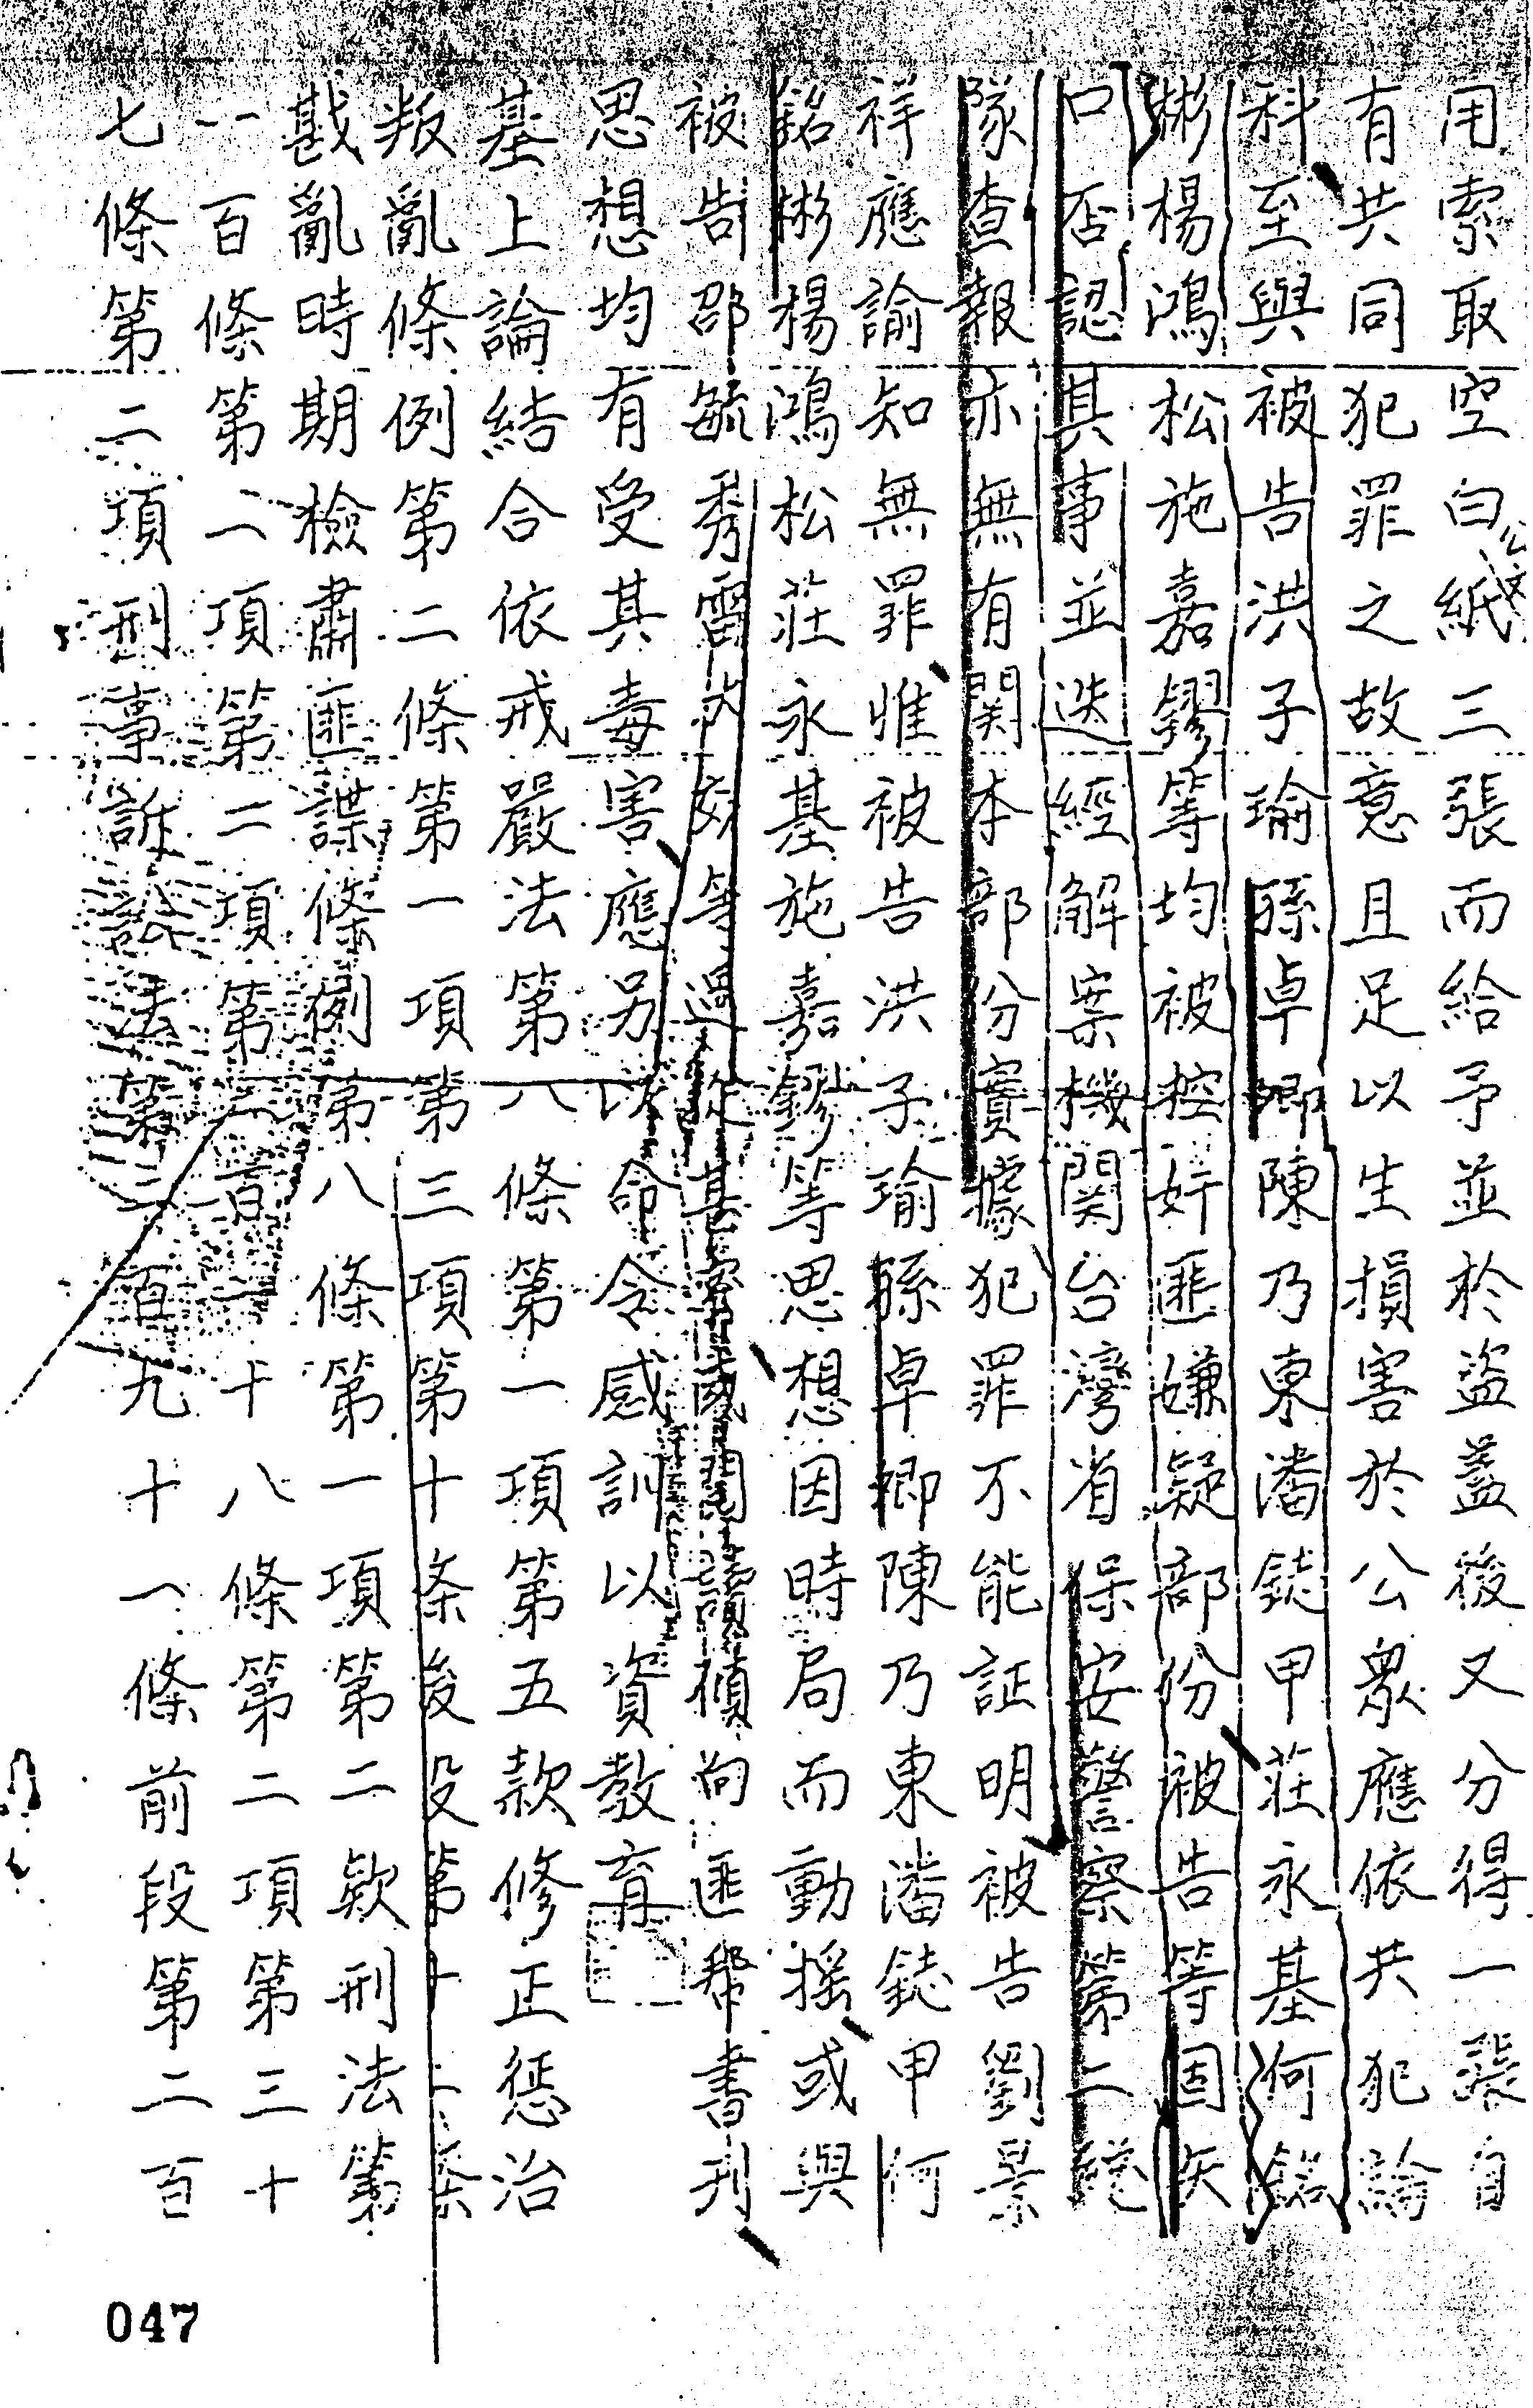 用索取空白公文紙三張而給予並於盜蓋後又分得一張自
有共同犯罪之故意且足以生損害於公眾應依共犯論
科至與被告洪子瑜孫卓卿陳乃東潘鋕甲莊永基何銘
彬楊鴻松施嘉鏐等均被控奸匪嫌疑部份被告等固矢
口否認其事並迭經解案機関台灣省保安警察第二總
隊查報亦無有関本部分實據犯罪不能証明被告劉景
祥應諭知無罪惟被告洪子瑜孫卓卿陳乃東潘鋕甲何
銘彬楊鴻松莊永基施嘉鏐等思想因時局而動搖或與
被告邵毓秀雷 等過從甚密或閱讀傾向匪幫書刊
思想均有受其毒害應另以命令感訓以資教育
基上論結合依戒嚴法第八條第一項第五款修正惩治
叛亂條例第二條第一項第三項第十条後段第十二条
戡亂時期檢肅匪諜條例第八條第一項第二款刑法第
一百條第二項第二項第二百一十八條第二項第三十
七條第二項刑事訴訟法第二百九十一條前段第二百
047